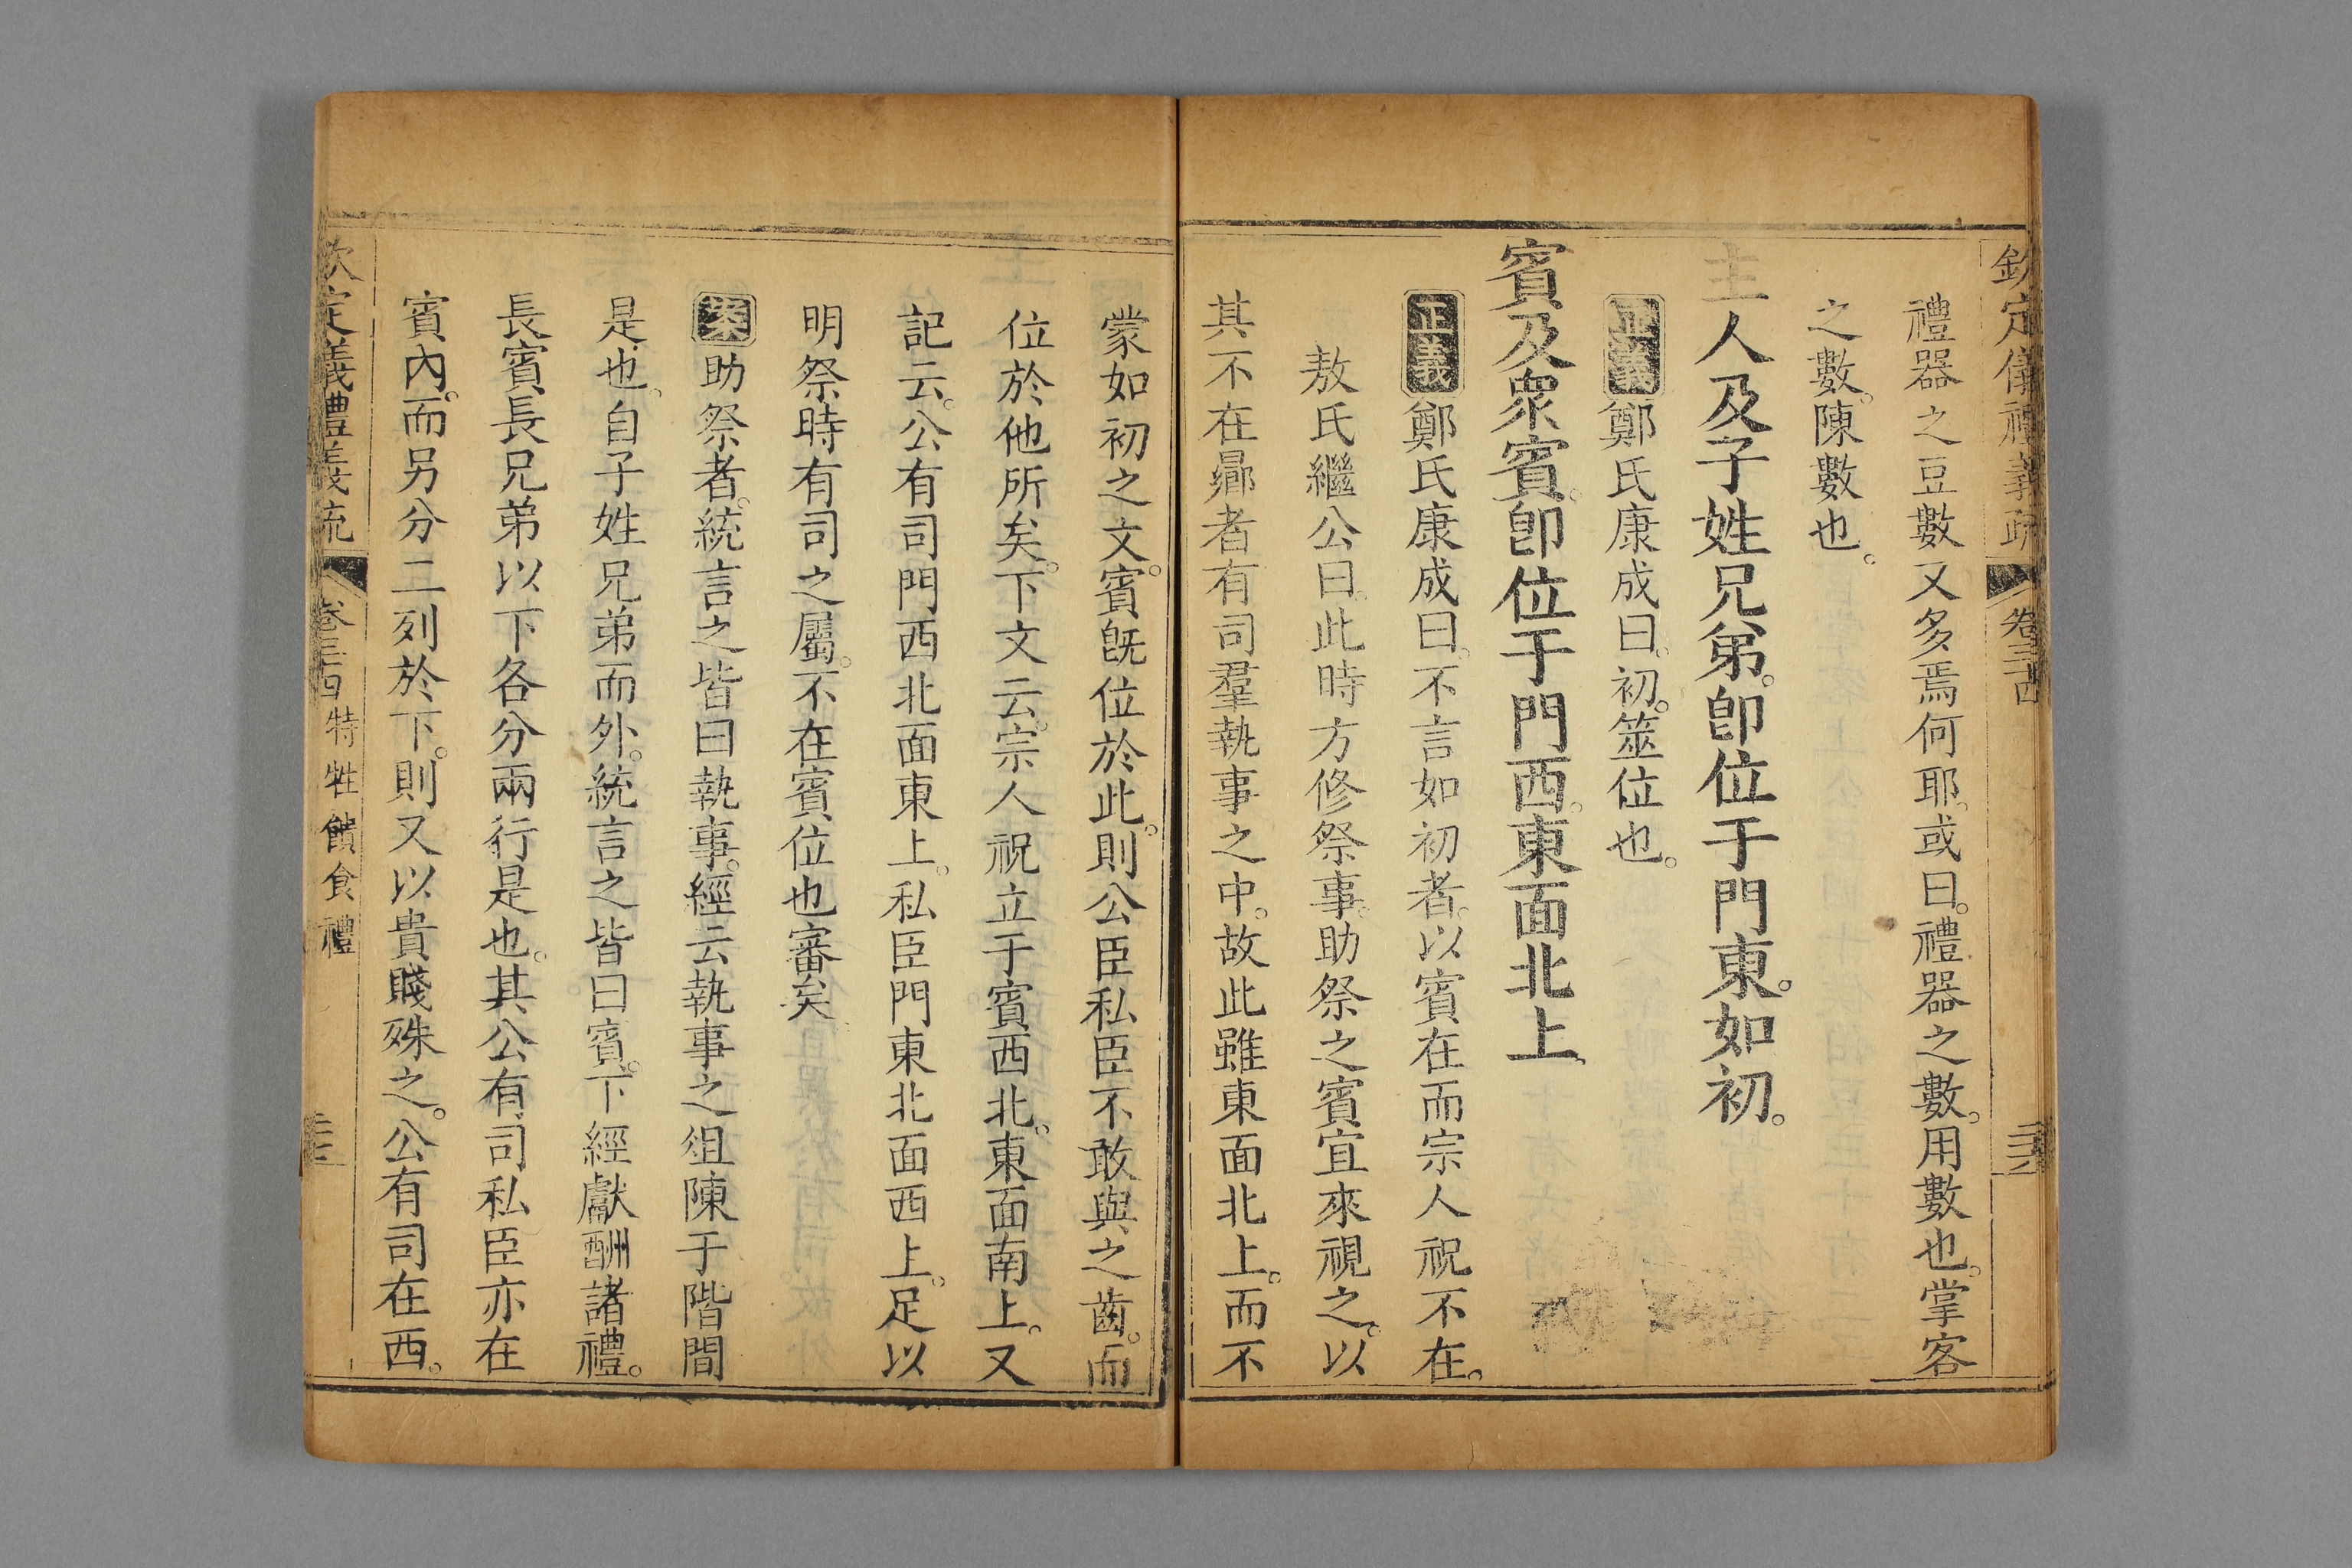 欽定儀禮義疏 卷三十四
禮器之豆數又多焉何耶。或曰。禮器之數。用數也。掌客
之數。陳數也。
主人及子姓兄弟。卽位于門東。如初。
正義 鄭氏康成曰。初。筮位也。
賓及衆賓。卽位于門西。東面北上。
正義 鄭氏康成曰。不言如初者。以賓在而宗人祝不在。
敖氏繼公曰。此時方修祭事。助祭之賓宜來視之。以
其不在曏者有司羣執事之中。故此雖東面北上。而不
蒙如初之文。賓旣位於此。則公臣私臣不敢與之齒。而
位於他所矣。下文云。宗人祝立于賓西北。東面南上。又
記云。公有司門西北面東上。私臣門東北面西上。足以
明祭時有司之屬。不在賓位也審矣。
案 助祭者。統言之皆曰執事。經云執事之俎陳于階間
是也。自子姓兄弟而外。統言之皆曰賓。下經獻酬諸禮。
長賓長兄弟以下各分兩行是也。其公有司私臣亦在
賓內。而另分二列於下。則又以貴賤殊之。公有司在西。
欽定儀禮義疏 卷三十四 特牲饋食禮